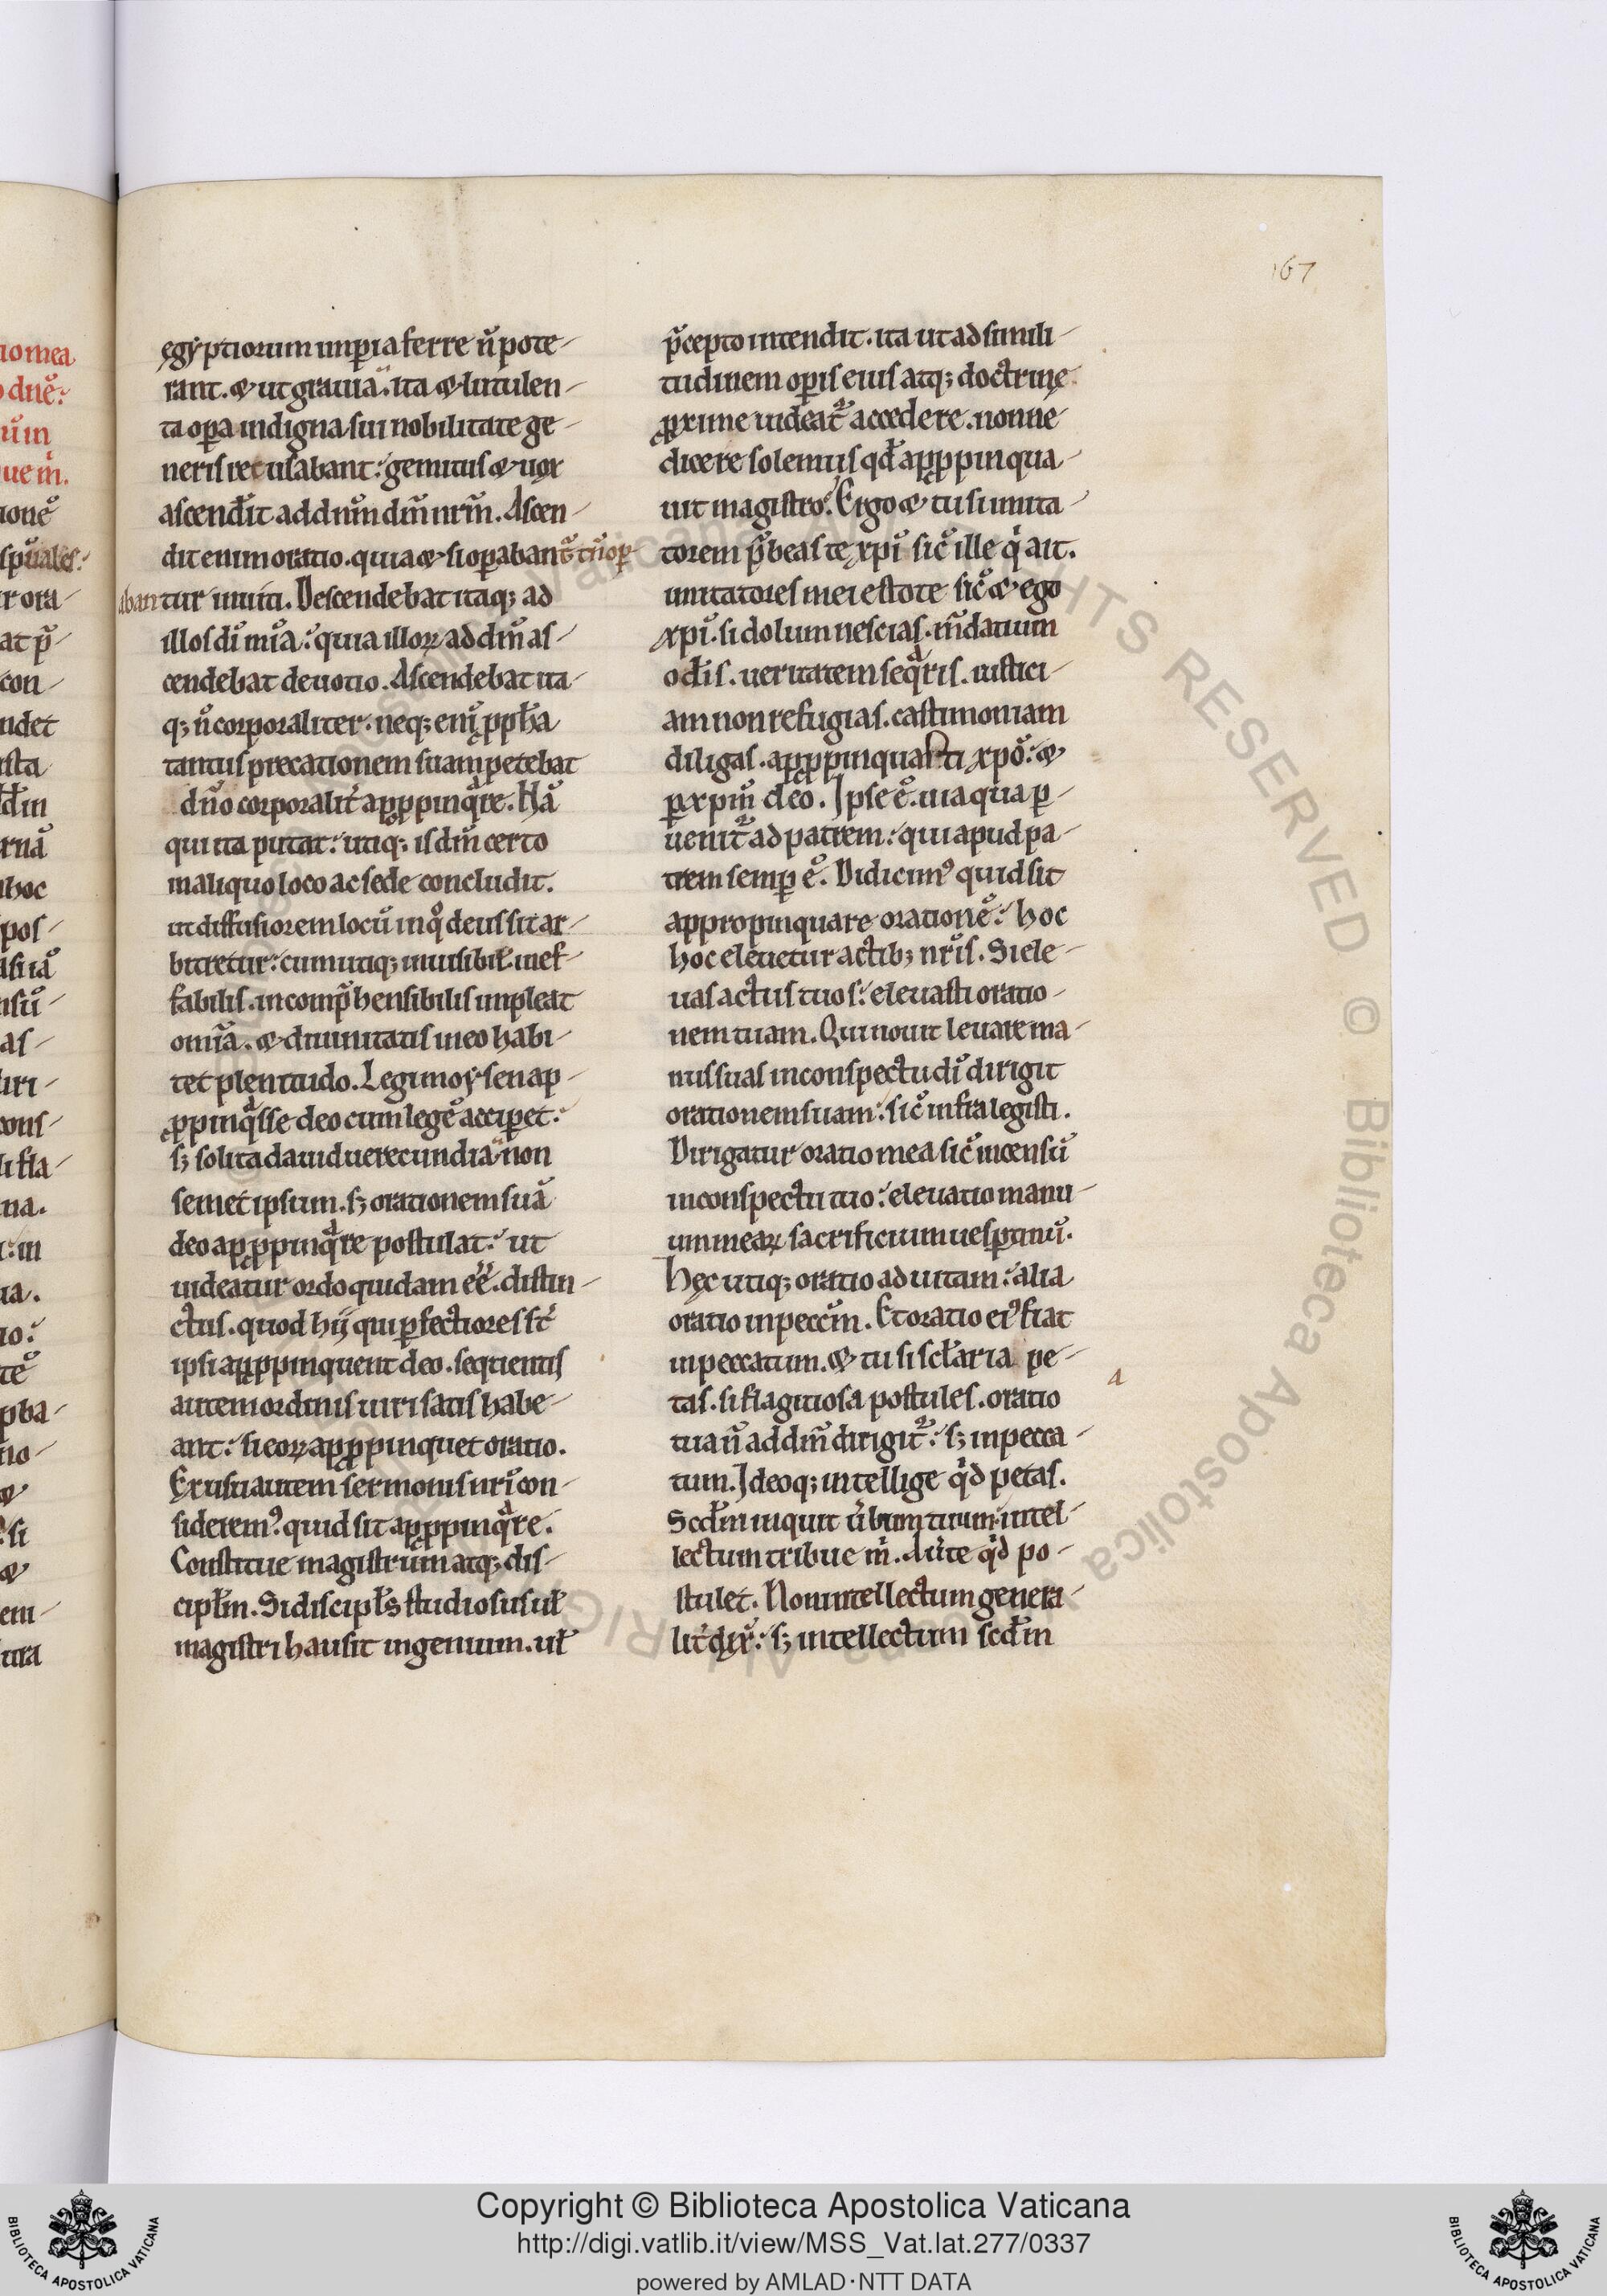 167
egyptiorum imp̱ia ferre n̄ pote-
rant. & ut grauia. ita & lutulen-
ta op̱a indigna sui nobilitate ge-
neris recusabant: gemitus & uox
ascend̄it ad dn̄m dm̄ nrm̄. Ascen-
dit enim oratio. quia & si op̱abant᷑ tn̄ op̱
abantur inuiti. Descendebat itaq; ad
illos dī mīa: quia illoꝝ ad dm̄ as-
cendebat deuotio. Ascendebat ita-
q; n̄ corporaliter. neq; eni ̄ ꝓph̄a
tantus precationem suam petebat
dn̄o corporalit̄ apꝓpinqͣre. Nā
qui ita putat: utiq; is dm̄ certo
in aliquo loco ac sede concludit.
ut diffusiorem locū in qͦ deus sit ar-
bitretur: cum utiq; inuisibil̄. inef-
fabilis. incomp̄hensibilis impleat
omīa. & diuinitatis in eo habi-
tet plenitudo. Legi moysen ap-
ꝓpinqͣsse deo cum legē accip̱et:
sꝫ solita dauid uerecundia non
semet ipsum. sꝫ orationem suā
deo apꝓpinqͣre postulat: ut
uideatur ordo quidam eē. distin-
ctus. quod hij qui ꝑfectiores st̄
ipsi apꝓpinquent deo. sequentis
autem ordinis uiri satis habe-
ant: si eoꝝ apꝓpinquet oratio.
Ex usu autem sermonis nrī con-
siderem᷒ quid sit apꝓpinqͣre.
Constitue magistrum atq; dis-
cipl̄m. Si discipl̄s studiosus ul̄
magistri hausit ingenium. ul̄
p̄cepto intendit. ita ut ad simili-
tudinem op̱is eius atq; doctrinę
ꝓxime uideat᷑ accedere. nonne
dicere solemus qd̄ apꝓpinqua-
uit magistro? Ergo & tu si imita-
torem p̄beas te xpī sic̄ ille qͥ ait.
imitatores mei estote sic̄ & ego
xpī. si dolum nescias. m̄datium
od̄is. ueritatem seqͣris. iustici-
am non refugias. castimoniam
diligas. apꝓpinquasti xpō: &
ꝑ xpm̄ deo. Ipse ē. uia qua ꝑ-
uenit᷑ ad patrem: qui apud pa-
trem semꝑ ē. Didicim᷒ quid sit
appropinquare orationē: hoc
hoc eleuetur actibꝫ nrīs. Si ele-
uas actus tuos: eleuasti oratio-
nem tuam. Qui nouit leuare ma-
nus suas in conspectu dī dirigit
orationem suam: sic̄ infra legisti.
Dirigatur oratio mea sic̄ incensū
in conspectu tuo: eleuatio manu-
um mearꝝ sacrificium uesꝑtinū.
Hęc utiq; oratio ad uitam: alia
oratio in peccm̄. Et oratio ei᷒ fiat
in peccatum. & tu si scl̄aria pe-
tas. si flagitiosa postules. oratio
tua n̄ ad dm̄ dirigit᷑: sꝫ in pecca-
tum. Ideoq; intellige qͥd petas.
Scd̄m inquit ūbum tuum intel-
lectum tribue m̄. Aūte qͥd po-
stulet. Non intellectum genera-
lit̄ dix̄: sꝫ intellectum scd̄m
a
Copyright © Biblioteca Apostolica Vaticana
http://digi.vatlib.it/view/MSS_Vat.lat.277/0337
powered by AMLAD·NTT DATA
BIBLIOTECA APOSTOLICA VATICANA
BIBLIOTECA APOSTOLICA VATICANA